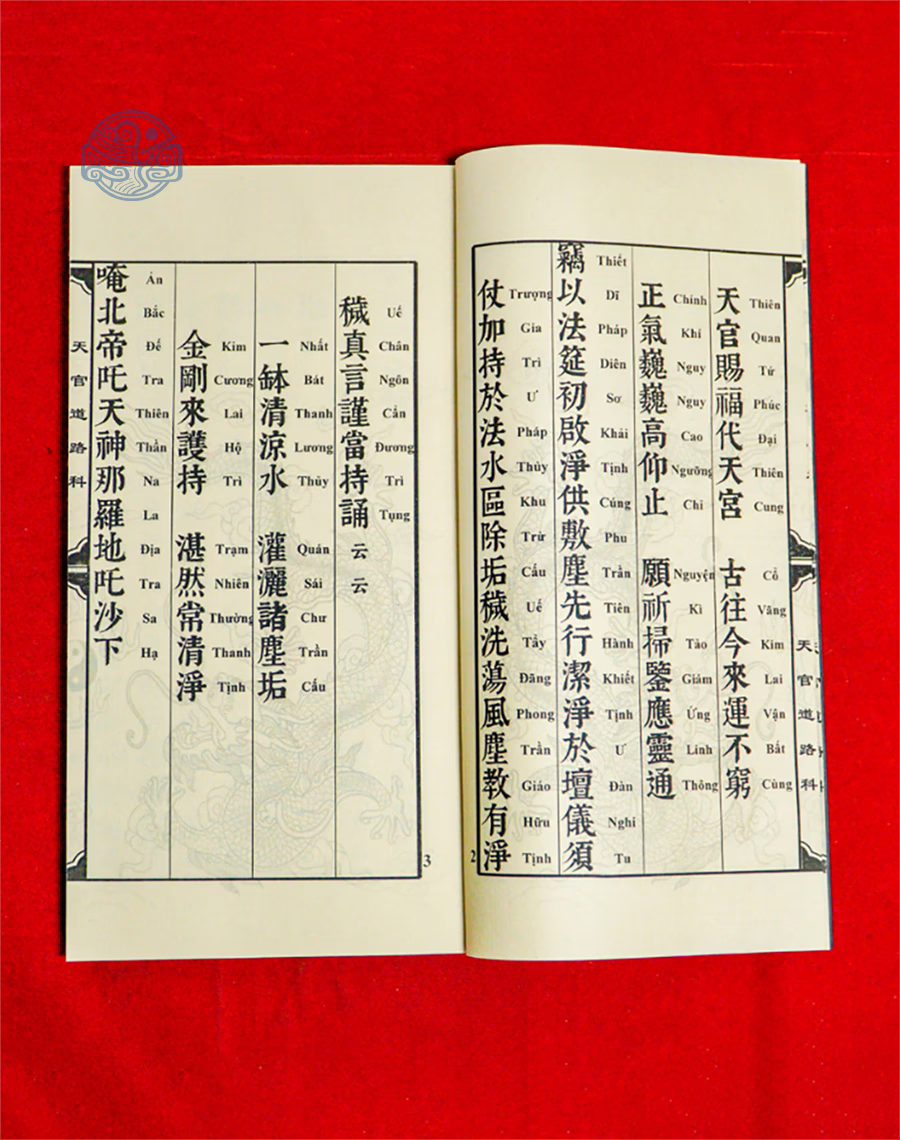 天官賜福代天宮 古往今來運不窮
Thiên Quan Tứ Phúc Đại Thiên Cung Cổ Vãng Kim Lai Vận Bất Cùng
正氣巍巍高仰止 願祈掃鑒應靈通
Chính Khí Nguy Nguy Cao Ngưỡng Chỉ Nguyện Kì Tảo Giám Ứng Linh Thông
竊以法筵初啟淨供敷塵先行潔淨於壇儀須
Thiết Dĩ Pháp Diên Sơ Khải Tịnh Cúng Phu Trần Tiên Hành Khiết Tịnh Ư Đàn Nghi Tu
仗加持於法水區除垢穢洗蕩風塵教有淨
Trượng Gia Trì Ư Pháp Thủy Khu Trừ Cấu Uế Tẩy Đãng Phong Trần Giáo Hữu Tịnh
天官道路科
2
穢真言謹當持誦云云
Uế Chân Ngôn Cẩn Đương Trì Tụng
一缽清涼水 灌灑諸塵垢
Nhất Bát Thanh Lương Thủy Quán Sái Chư Trần Cấu
金剛來護持 湛然常清淨
Kim Cương Lai Hộ Trì Trạm Nhiên Thường Thanh Tịnh
唵北帝吒天神那羅地吒沙下
Án Bắc Đế Tra Thiên Thần Na La Địa Tra Sa Hạ
天官道路科
3